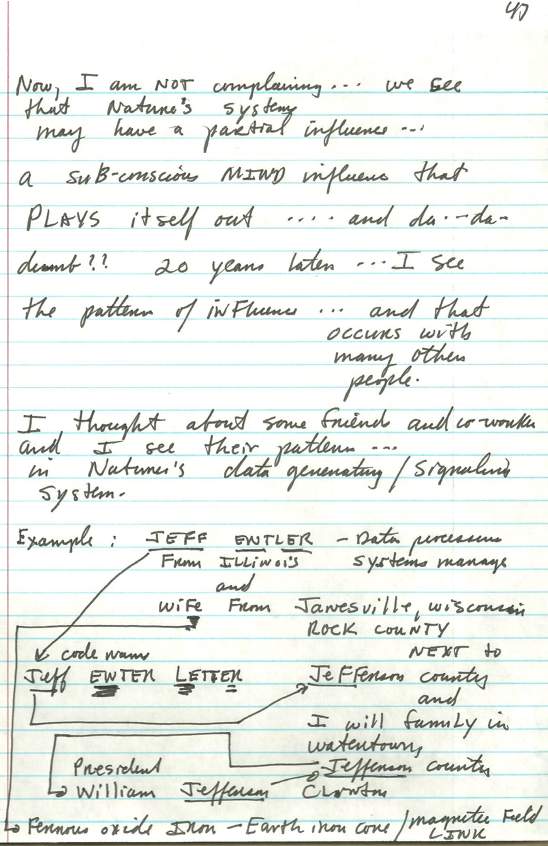 47
Now, I am NOT complaining... we see
that Nature's system
may have a partial influence...
a SUB-conscious MIND influence that
PLAYS itself out .... and da--da-
dumb?? 20 years later ...I see
the pattern of iNFluence ... and that
occurs with
many others
people.
I thought about some friend and co-worker
and I see their pattern ...
in Nature's data generating / Signaling
system.
Example: JEFF ENTLER - Data processing
From ILLiNoi's systems manage
and
WiFe From Janesville, wisconsin
ROCK COUNTY
code name NEXT to
Jeff ENTER LETTER JeFFerson county
and
I will family in
watertown,
Jefferson county
President
William Jefferson Clinton
Ferrous oxide Iron - Earth iron core / magnetic Field
LINK